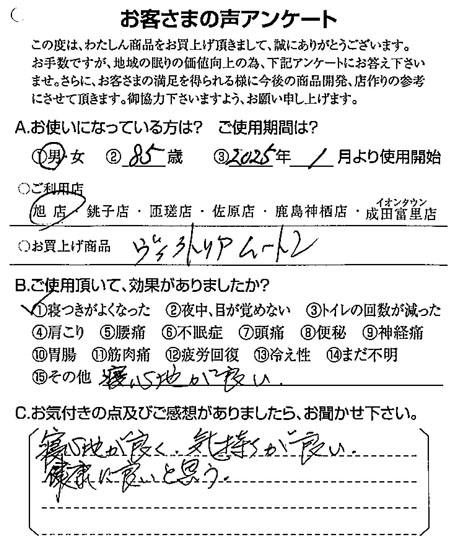 お客さまの声アンケート
この度は、わたしん商品をお買上げ頂きまして、誠にありがとうございます。
お手数ですが、地域の眠りの価値向上の為、下記アンケートにお答え下さい
ませ。さらに、お客さまの満足を得られる様に今後の商品開発、店作りの参考
にさせて頂きます。御協力下さいますよう、お願い申し上げます。
A.お使いになっている方は? ご使用期間は?
①男・女 ②85歳 ③2025年1月より使用開始
○ご利用店
旭店・銚子店・匝瑳店・佐原店・鹿島神栖店・イオンタウン成田富里店
○お買上げ商品 ヴィクトリアムートン
B.ご使用頂いて、効果がありましたか?
①寝つきがよくなった ②夜中、目が覚めない ③トイレの回数が減った
④肩こり ⑤腰痛 ⑥不眠症 ⑦頭痛 ⑧便秘 ⑨神経痛
⑩胃腸 ⑪筋肉痛 ⑫疲労回復 ⑬冷え性 ⑭まだ不明
⑮その他 寝心地が良い。
C.お気付きの点及びご感想がありましたら、お聞かせ下さい。
寝心地が良く、気持ちが良い。
健康に良いと思う。